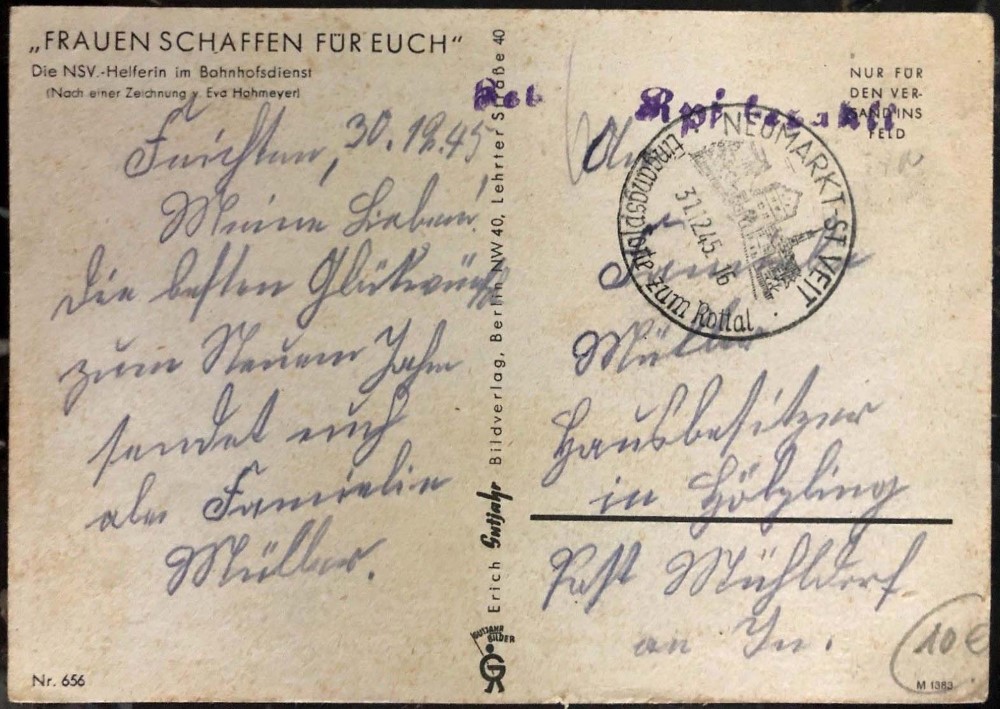 „FRAUEN SCHAFFEN FÜR EUCH“
Die NSV.-Helferin im Bahnhofsdienst
(Nach einer Zeichnung v. Eva Hohmeyer)
30.12.45
Meine Lieben!
Die besten Glückwünsche
zum Neuen Jahr
sendet euch
Familie
Müller.
Nr. 656
Erich Gutjahr Bildverlag, Berlin NW 40, Lehrter Straße 40
GUTJAHR BILDER
NUR FÜR
DEN VER-
SAND INS
FELD
NEUMARKT-ST. VEIT
31.12.45.16
Eingangspforte zum Rottal
An
Familie
Müller
Hausbesitzer
in Hölzling
Post Mühldorf
an In.
10€
M 1383